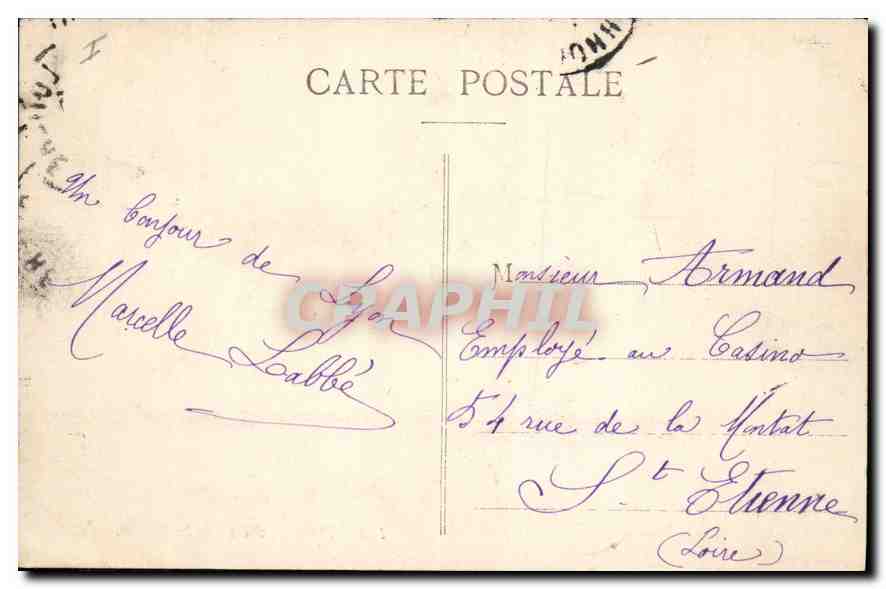 CARTE POSTALE
Un bonjour de Lyon
Marcelle Labbé
Monsieur Armand
Employé au Casino
54 rue de la Montat
St Etienne
(Loire)
CPAPHIL